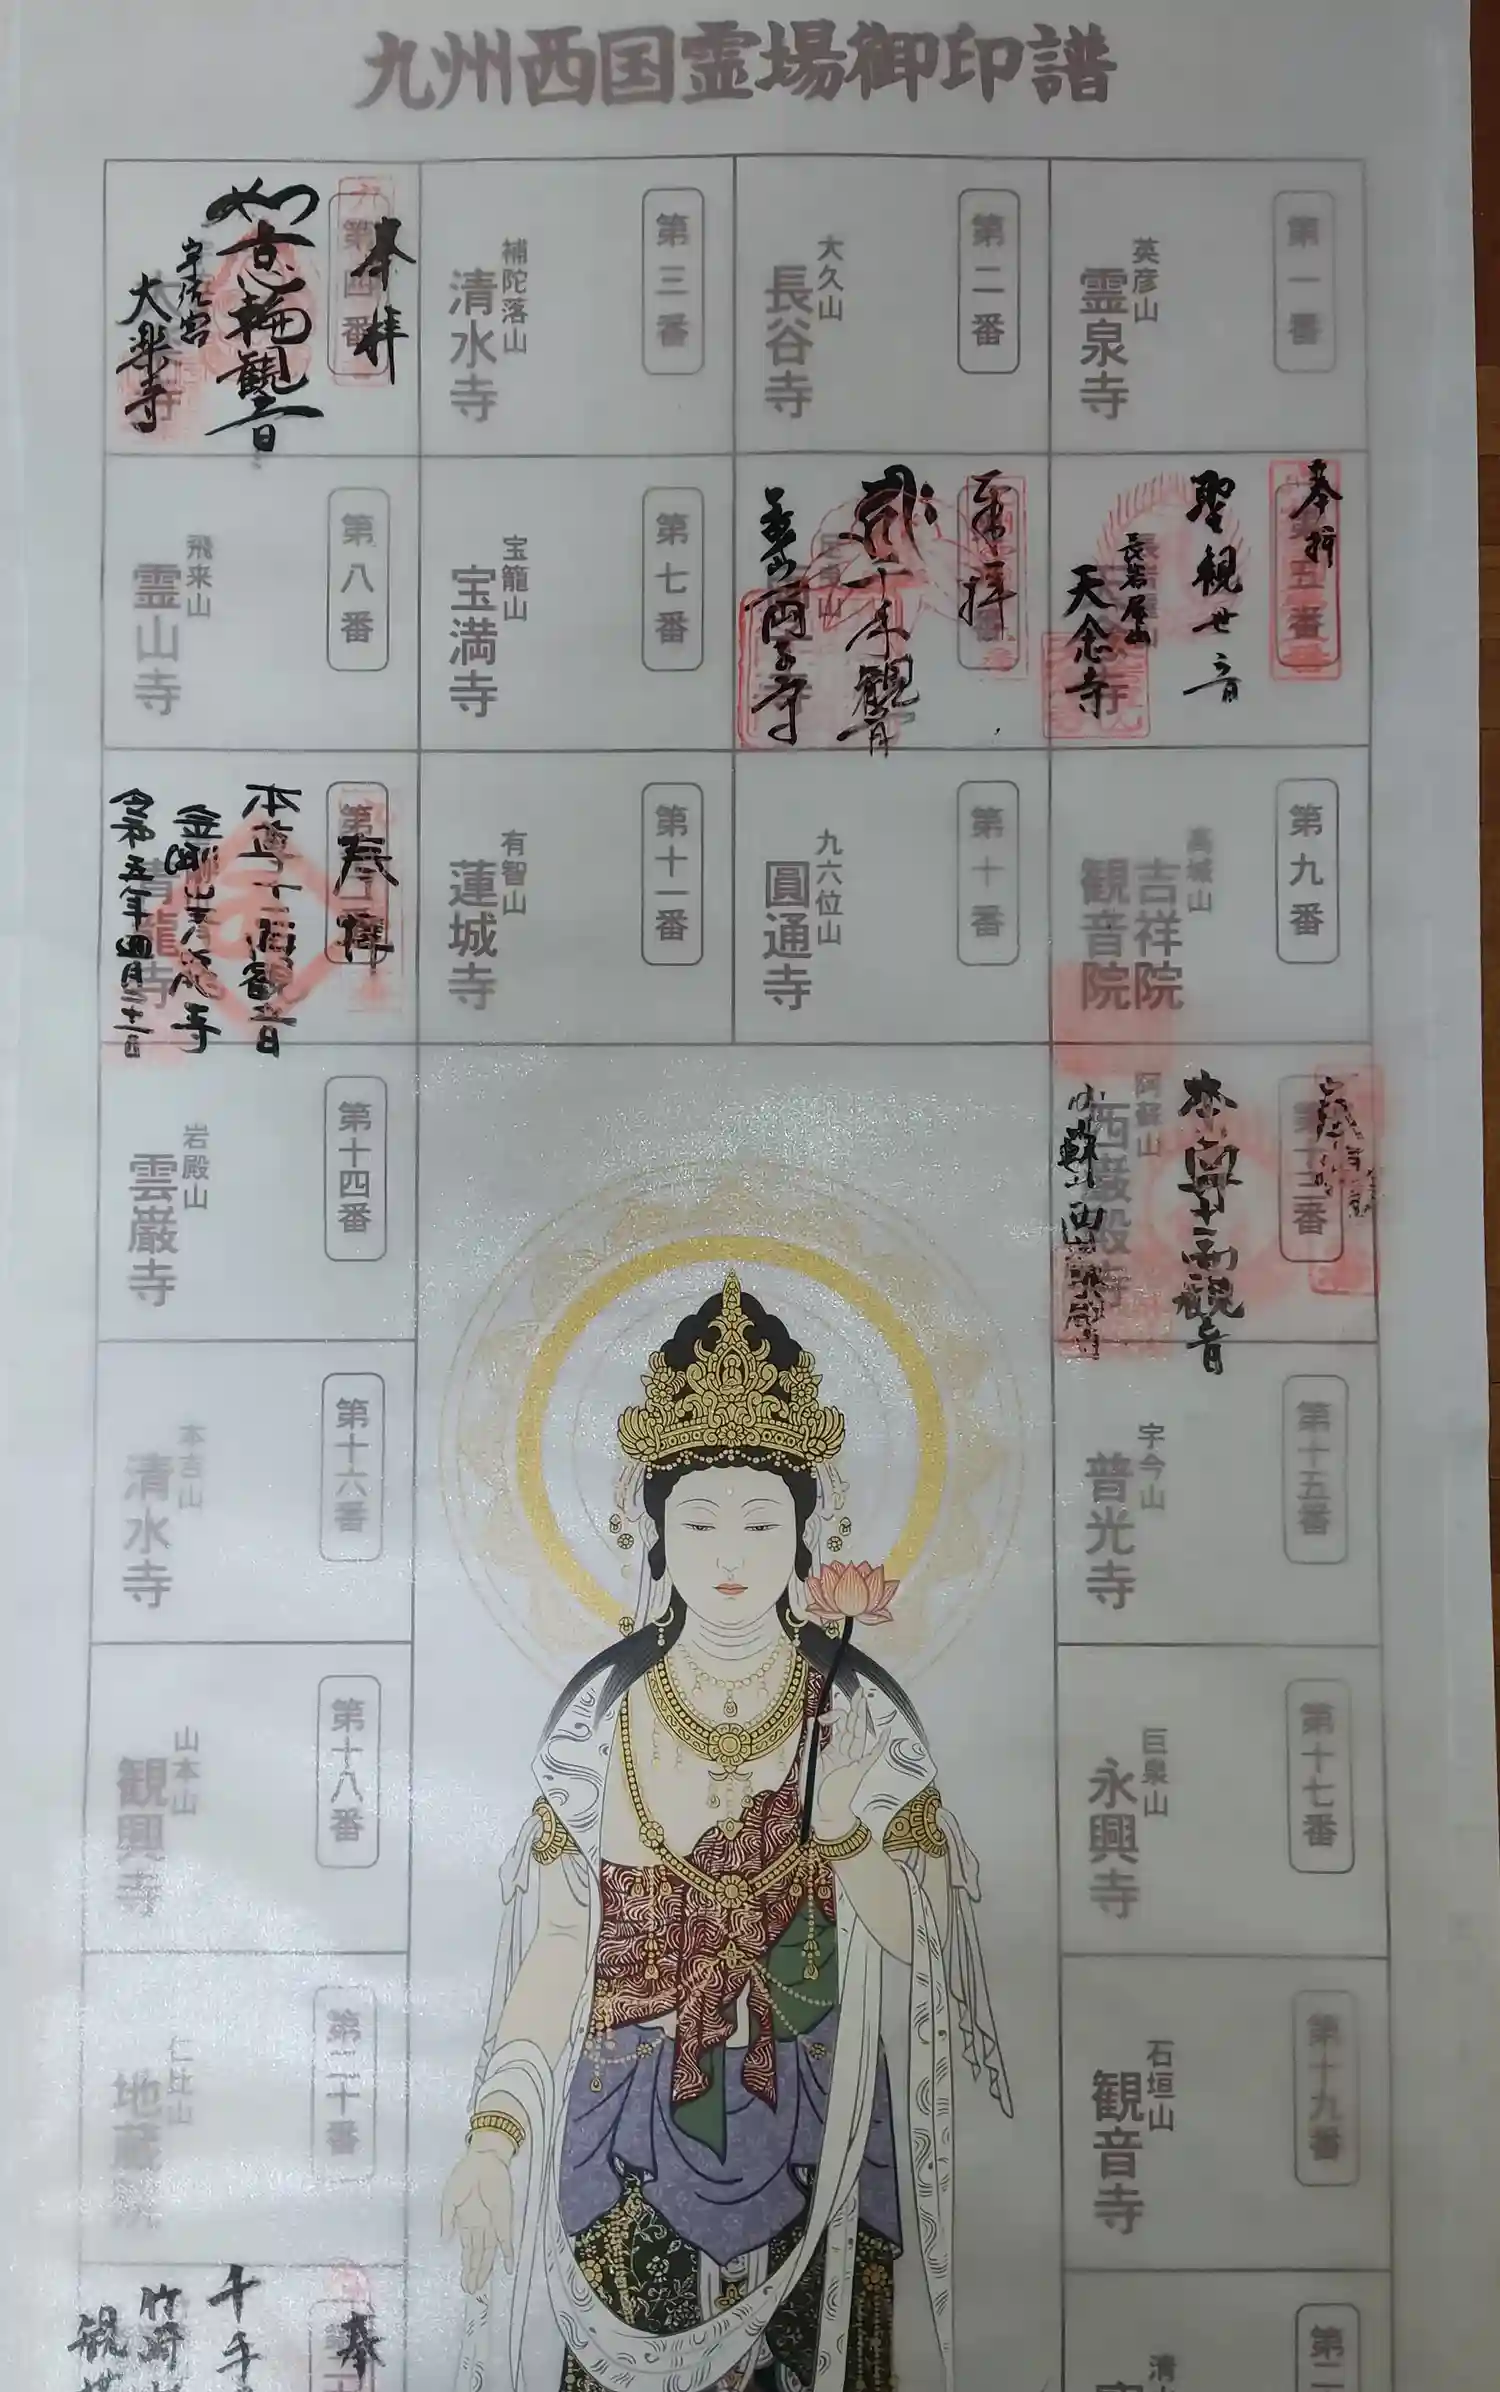 九州西国霊場御印譜
第一番
英彦山
霊泉寺
第二番
大久山
長谷寺
第三番
補陀落山
清水寺
第四番
奉拝
如意輪観音
宇佐宮
大楽寺
第五番
奉拝
聖観世音
長岩屋山
天念寺
奉拝
千手観音
両子寺
第七番
宝籠山
宝満寺
第八番
飛来山
霊山寺
第九番
高城山
吉祥院
観音院
第十番
九六位山
圓通寺
第十一番
有智山
蓮城寺
奉拝
本尊十一面観音
金剛山青龍寺
令和五年四月二十二日
第十三番
阿蘇山
西巌殿寺
本尊十一面観音
第十四番
岩殿山
雲巌寺
第十五番
宇今山
普光寺
第十六番
本吉山
清水寺
第十七番
巨泉山
永興寺
第十八番
山本山
観興寺
第十九番
石垣山
観音寺
第二十番
仁比山
地蔵院
奉
千手
竹崎
観
第二
清水